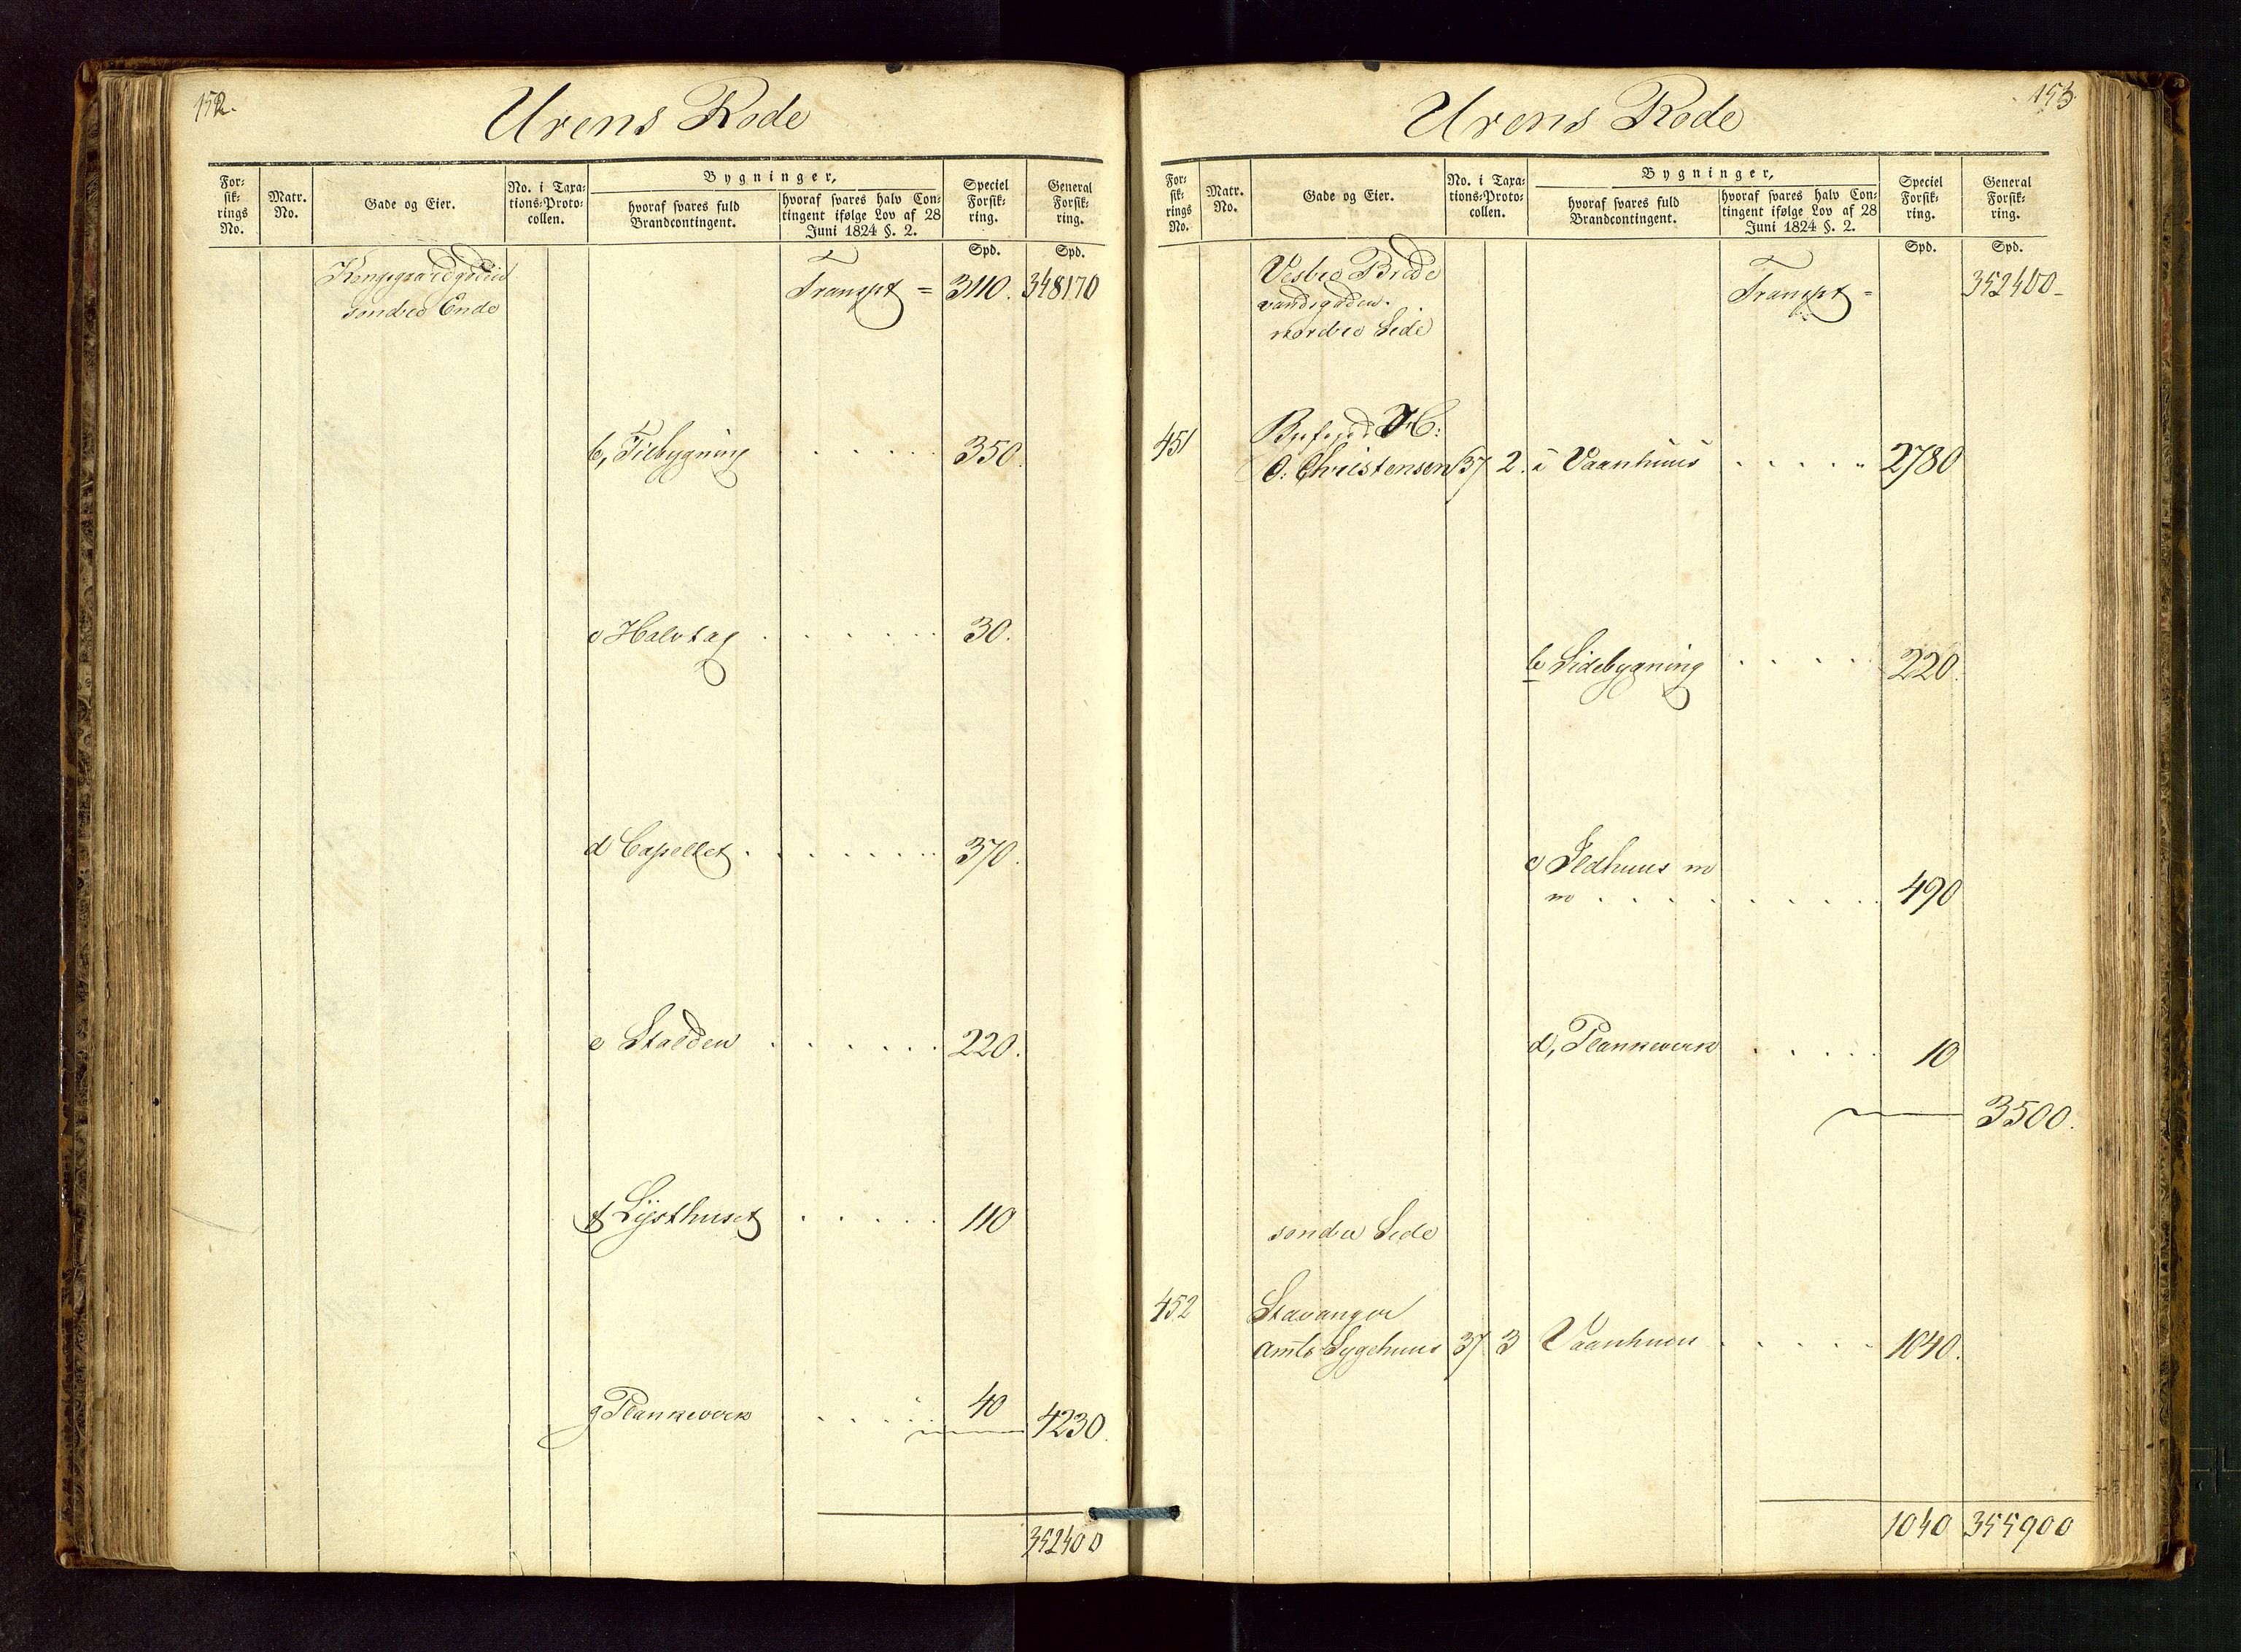 152.
Urens Rode
For-
sik-
rings
No.
Matr.
No.
Gade og Eier.
No. i Taxa-
tions-Proto-
collen.
Bygninger,
hvoraf svares fuld
Brandcontingent.
hvoraf svares halv Con-
tingent ifølge Lov af 28
Juni 1824 §. 2.
Speciel
Forsik-
ring.
General
Forsik-
ring.
Spd. Spd.
Kongsgaardgaden Transpt = 3110. 348170
sondre Ende
b, Tilbygning 350.
c Halvtag 30.
d Capellet 370.
e Stalden 220.
f Lysthuset 110
g Plankeverk 40 4230.
352400
153.
Urens Rode
For-
sik-
rings
No.
Matr.
No.
Gade og Eier.
No. i Taxa-
tions-Proto-
collen.
Bygninger,
hvoraf svares fuld
Brandcontingent.
hvoraf svares halv Con-
tingent ifølge Lov af 28
Juni 1824 §. 2.
Speciel
Forsik-
ring.
General
Forsik-
ring.
Spd. Spd.
Vestre Brede Transpt = 352400
vandsgaden.
nordre Side
451 Byfoged
O: Christensen 37 2. a Vaanhuus 2780
b Sidebygning 220.
c Ildhuus m
m 490
d, Plankeverk 10
3500.
sondre Side
452 Stavanger
Amts Sygehuus 37 3 Vaanhuus 1040.
1040 355900